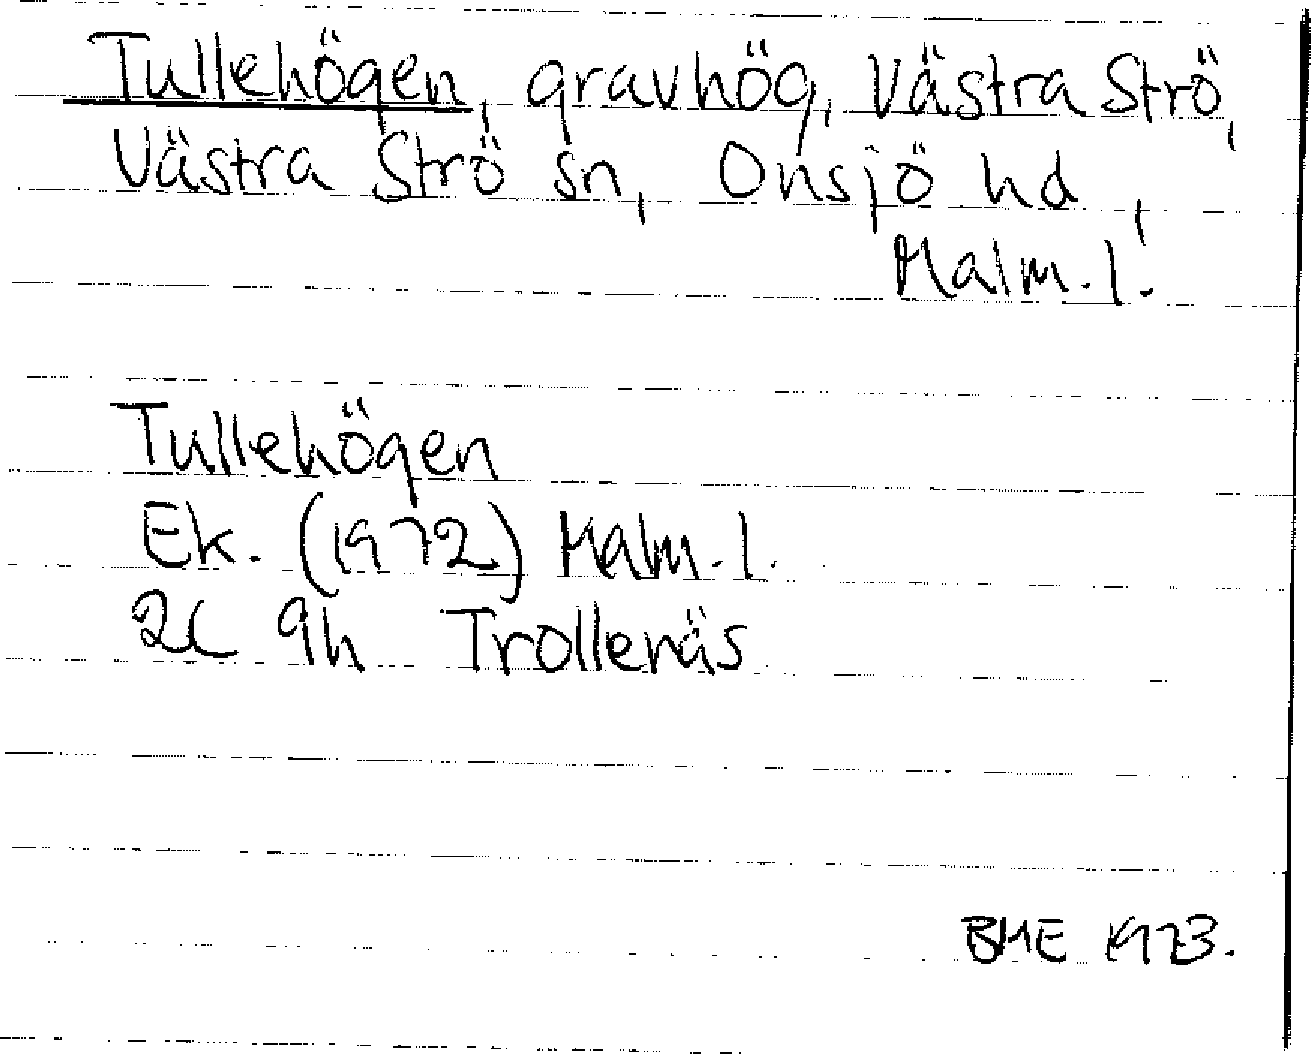 Tullehögen, gravhög, Västra Strö,
Västra Strö sn, Onsjö hd,
Malm. l.
Tullehögen
Ek. (1972) Malm. l.
2C 9h Trollenäs
BME 1973.